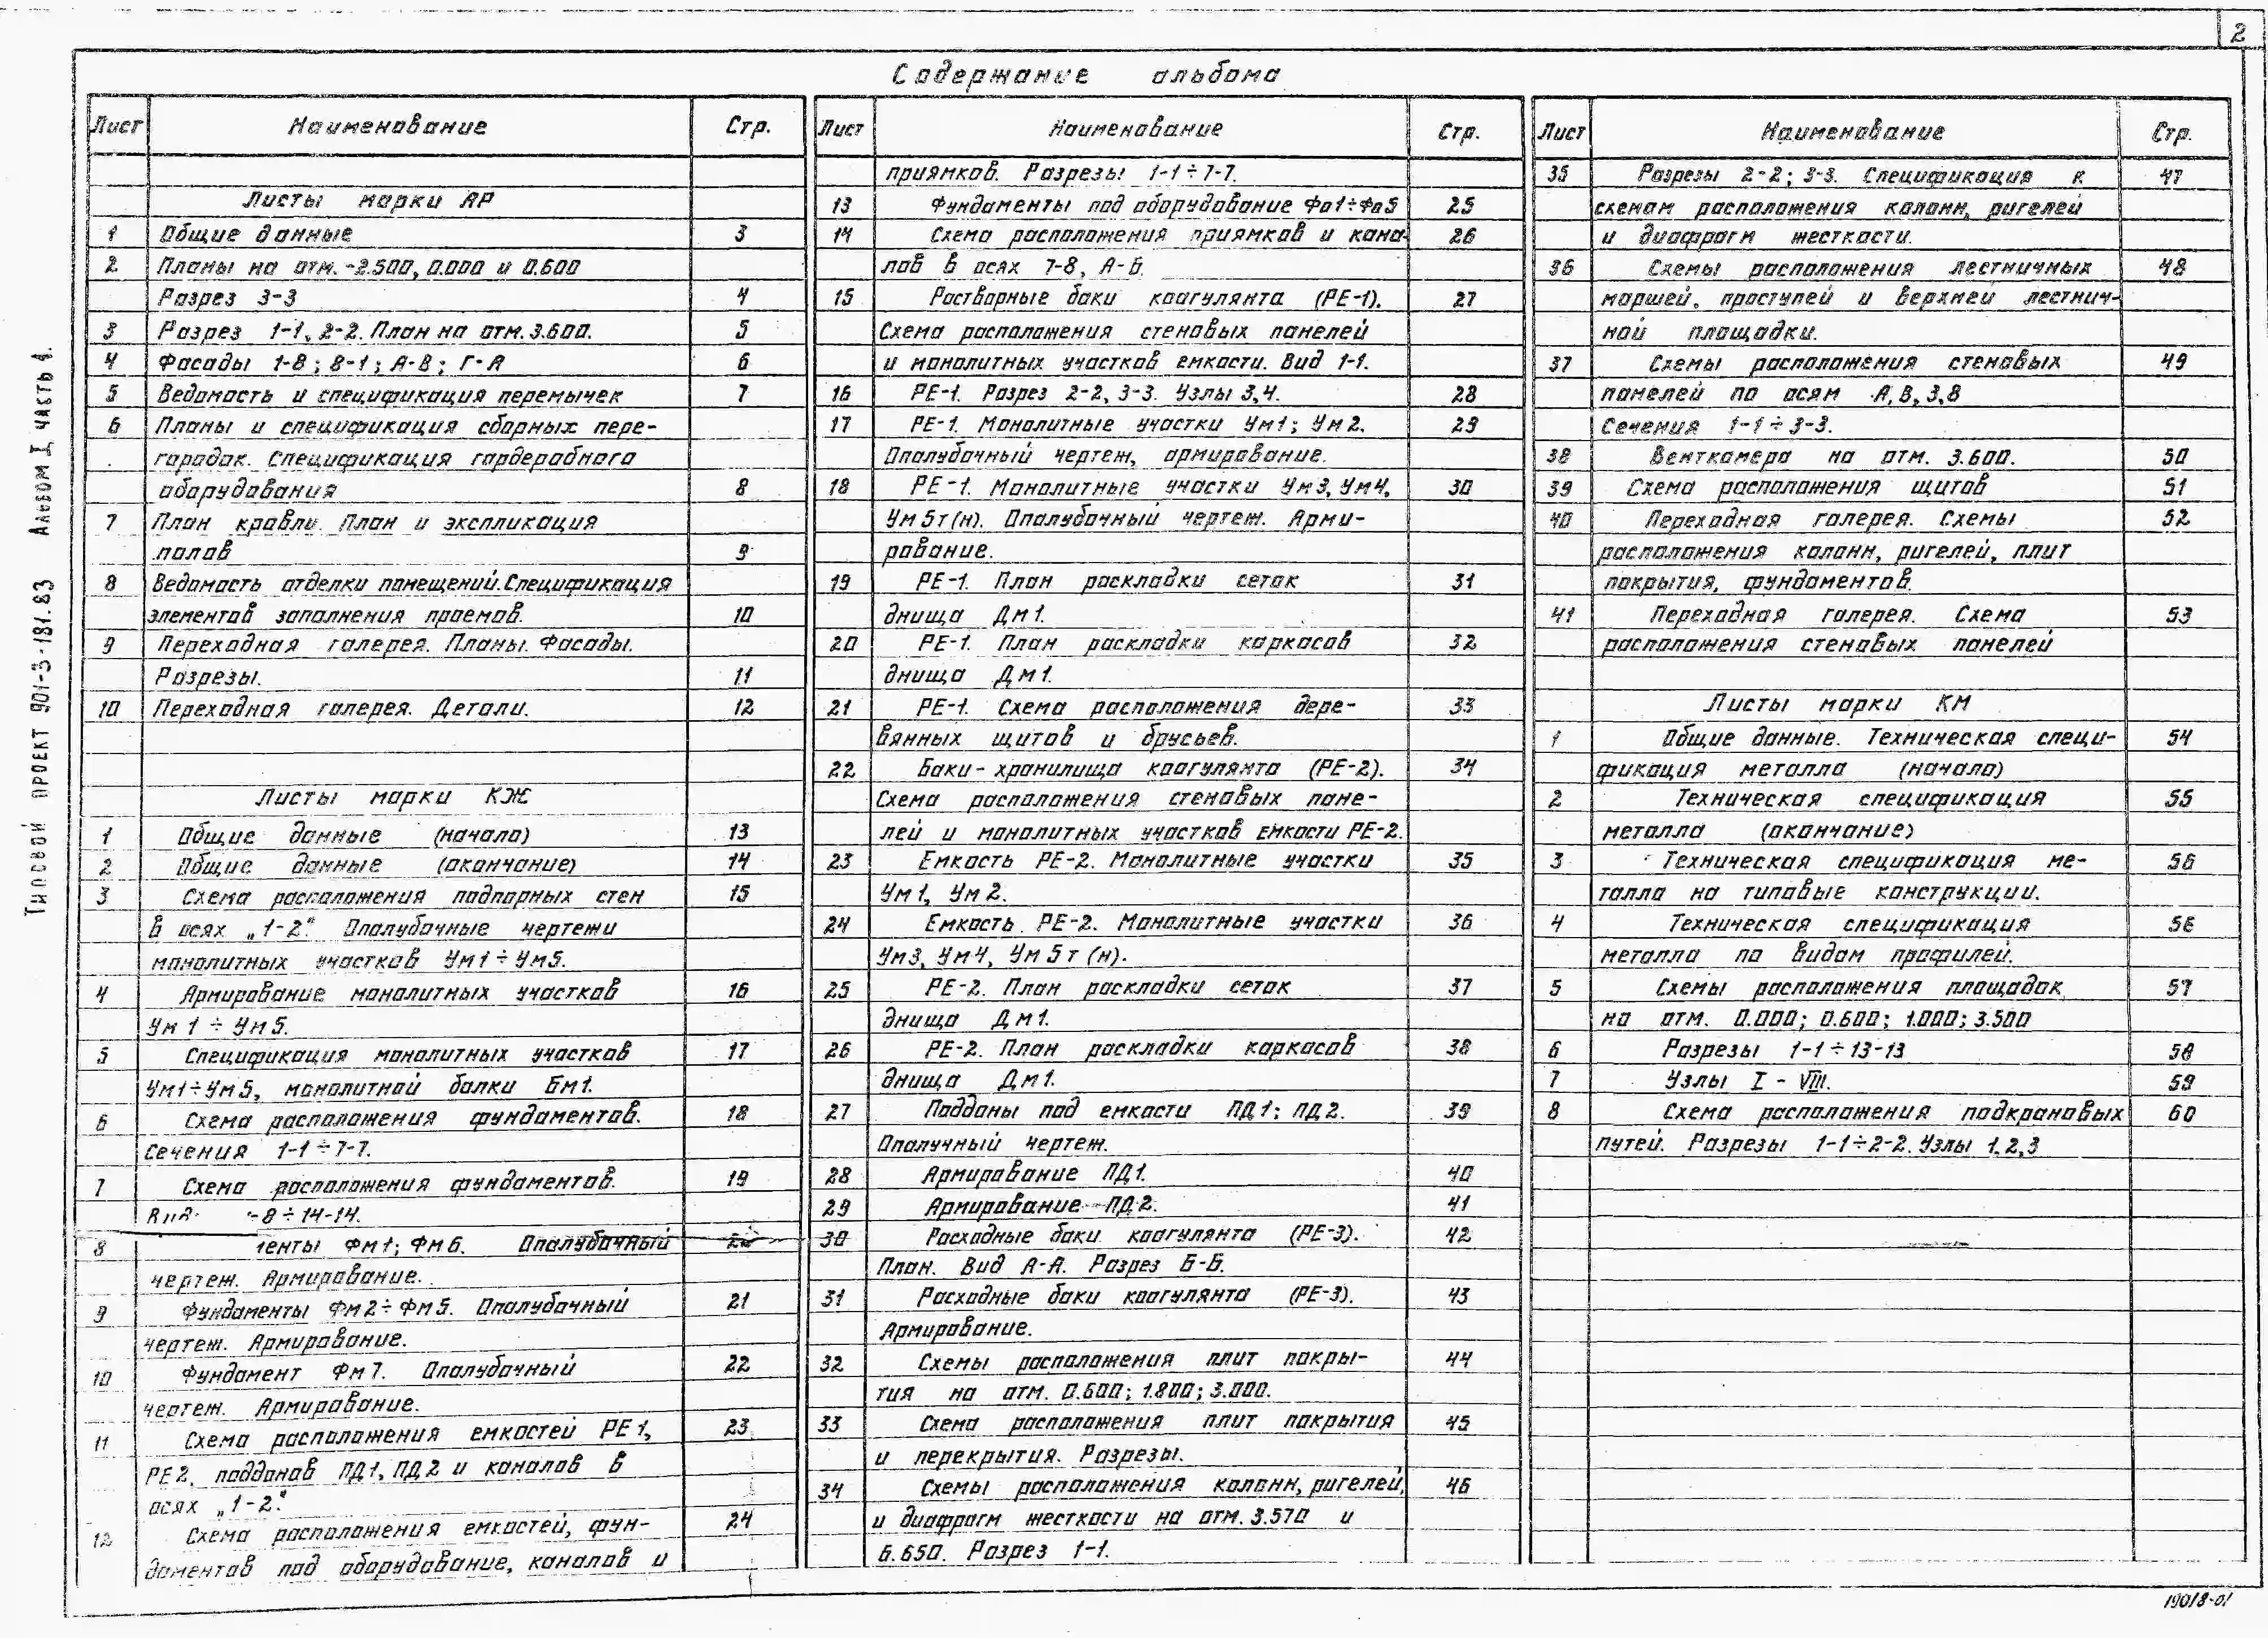 2
Содержание альбома
Типовой проект 901-3-181.83 Альбом I, часть 1.
Лист Наименование Стр.
Листы марки АР
1 Общие данные 3
2 Планы на отм. -2.500, 0.000 и 0.600
Разрез 3-3 4
3 Разрез 1-1, 2-2. План на отм. 3.600. 5
4 Фасады 1-8; 8-1; А-В; Г-А 6
5 Ведомость и спецификация перемычек 7
6 Планы и спецификация сборных пере-
городок. Спецификация гардеробного
оборудования 8
7 План кровли. План и экспликация
полов 9
8 Ведомость отделки помещений. Спецификация
элементов заполнения проемов. 10
9 Переходная галерея. Планы. Фасады.
Разрезы. 11
10 Переходная галерея. Детали. 12
Листы марки КЖ
1 Общие данные (начало) 13
2 Общие данные (окончание) 14
3 Схема расположения подпорных стен 15
в осях „1-2“ Опалубочные чертежи
монолитных участков Ум1÷Ум5.
4 Армирование монолитных участков 16
Ум 1 ÷ Ум 5.
5 Спецификация монолитных участков 17
Ум1÷Ум5, монолитной балки Бм1.
6 Схема расположения фундаментов. 18
Сечения 1-1÷7-7.
7 Схема расположения фундаментов. 19
-8÷14-14.
8 енты Фм1; Фм6. Опалубочный
чертеж. Армирование.
9 Фундаменты Фм2÷Фм5. Опалубочный 21
чертеж. Армирование.
10 Фундамент Фм7. Опалубочный 22
чертеж. Армирование.
11 Схема расположения емкостей РЕ1, 23
РЕ2, поддонов ПД1, ПД2 и каналов в
осях „1-2“
12 Схема расположения емкостей, фун- 24
даментов под оборудование, каналов и
Лист Наименование Стр.
приямков. Разрезы 1-1÷7-7.
13 Фундаменты под оборудование Фо1÷Фо5 25
14 Схема расположения приямков и кана- 26
лов в осях 7-8, А-Б.
15 Растворные баки коагулянта (РЕ-1). 27
Схема расположения стеновых панелей
и монолитных участков емкости. Вид 1-1.
16 РЕ-1. Разрез 2-2, 3-3. Узлы 3,4. 28
17 РЕ-1. Монолитные участки Ум1; Ум2. 29
Опалубочный чертеж, армирование.
18 РЕ-1. Монолитные участки Ум3, Ум4, 30
Ум5т(н). Опалубочный чертеж. Арми-
рование.
19 РЕ-1. План раскладки сеток 31
днища Дм1.
20 РЕ-1. План раскладки каркасов 32
днища Дм1.
21 РЕ-1. Схема расположения дере- 33
вянных щитов и брусьев.
22 Баки-хранилища коагулянта (РЕ-2). 34
Схема расположения стеновых пане-
лей и монолитных участков емкости РЕ-2.
23 Емкость РЕ-2. Монолитные участки 35
Ум1, Ум2.
24 Емкость РЕ-2. Монолитные участки 36
Ум3, Ум4, Ум5т(н).
25 РЕ-2. План раскладки сеток 37
днища Дм1.
26 РЕ-2. План раскладки каркасов 38
днища Дм1.
27 Поддоны под емкости ПД1; ПД2. 39
Опалучный чертеж.
28 Армирование ПД1. 40
29 Армирование ПД2. 41
30 Расходные баки коагулянта (РЕ-3). 42
План. Вид А-А. Разрез Б-Б.
31 Расходные баки коагулянта (РЕ-3). 43
Армирование.
32 Схемы расположения плит покры- 44
тия на отм. 0.600; 1.800; 3.000.
33 Схема расположения плит покрытия 45
и перекрытия. Разрезы.
34 Схемы расположения колонн, ригелей, 46
и диафрагм жесткости на отм. 3.570 и
6.650. Разрез 1-1.
Лист Наименование Стр.
35 Разрезы 2-2; 3-3. Спецификация к 47
схемам расположения колонн, ригелей
и диафрагм жесткости.
36 Схемы расположения лестничных 48
маршей, проступей и верхней лестнич-
ной площадки.
37 Схемы расположения стеновых 49
панелей по осям А, В, 3, 8
Сечения 1-1÷3-3.
38 Венткамера на отм. 3.600. 50
39 Схема расположения щитов 51
40 Переходная галерея. Схемы 52
расположения колонн, ригелей, плит
покрытия, фундаментов.
41 Переходная галерея. Схема 53
расположения стеновых панелей
Листы марки КМ
1 Общие данные. Техническая специ- 54
фикация металла (начало)
2 Техническая спецификация 55
металла (окончание)
3 Техническая спецификация ме- 56
талла на типовые конструкции.
4 Техническая спецификация 56
металла по видам профилей.
5 Схемы расположения площадок 57
на отм. 0.000; 0.600; 1.000; 3.500
6 Разрезы 1-1÷13-13 58
7 Узлы I - VIII. 59
8 Схема расположения подкрановых 60
путей. Разрезы 1-1÷2-2. Узлы 1,2,3
19018-01